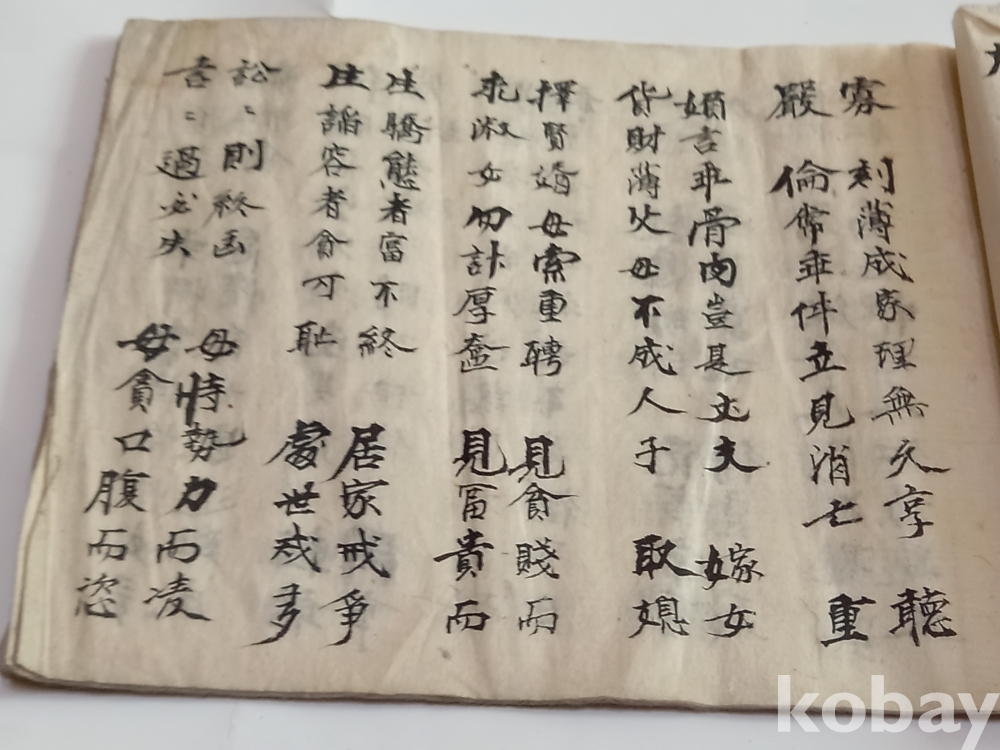 寡 刻薄成家理無久享 聽
嚴 倫常乖件立見消亡 重
婦言乖骨肉豈是丈夫 嫁女
貨財薄父母不成人子 取媳
擇賢婚毋索重聘 見貧賤而
求淑女勿計厚奩 見富貴而
生驕態者富不終 居家戒爭
生諂容者貧可耻 處世戒多
訟〻則終凶 毋恃勢力而凌
言〻過必失 毋貪口腹而恣
kobay